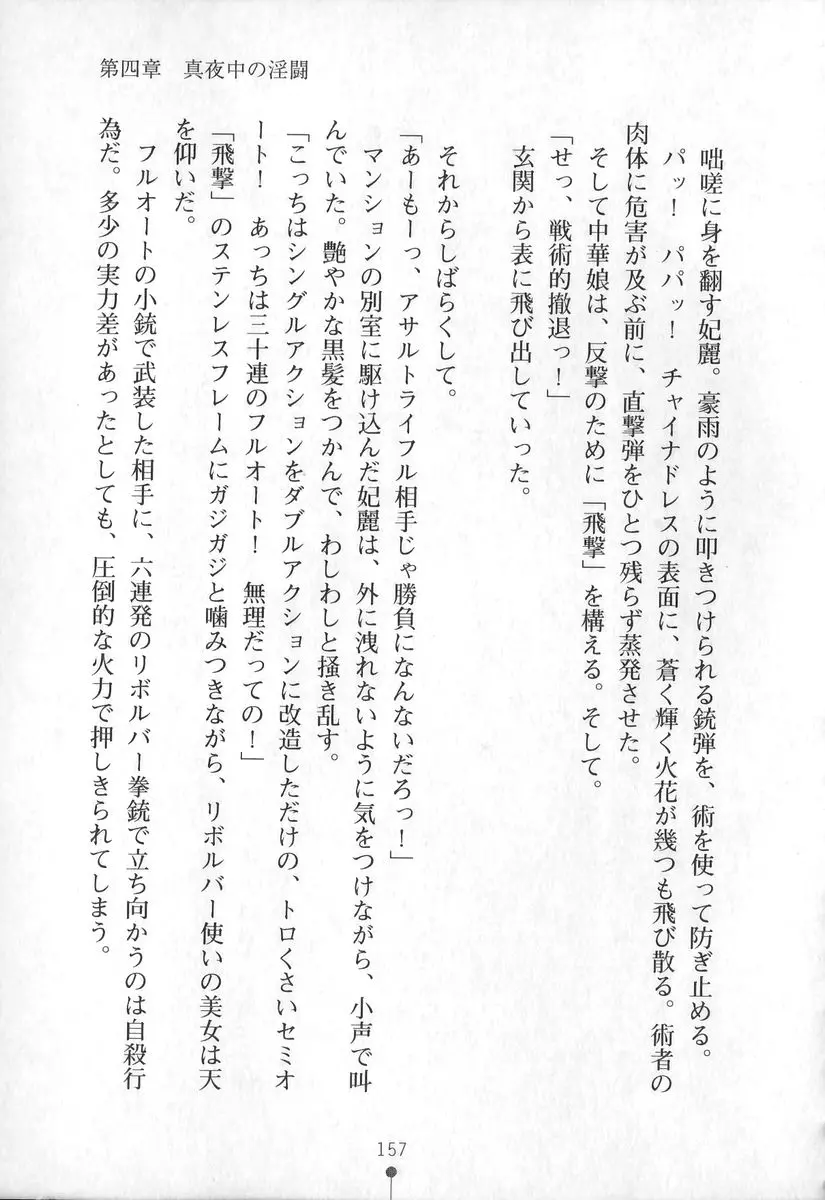 第四章　真夜中の淫闘
　咄嗟に身を翻す妃麗。豪雨のように叩きつけられる銃弾を、術を使って防ぎ止める。
　パッ！　パパッ！　チャイナドレスの表面に、蒼く輝く火花が幾つも飛び散る。術者の
肉体に危害が及ぶ前に、直撃弾をひとつ残らず蒸発させた。
　そして中華娘は、反撃のために「飛撃」を構える。そして。
「せっ、戦術的撤退っ！」
　玄関から表に飛び出していった。
　それからしばらくして。
「あーもーっ、アサルトライフル相手じゃ勝負になんないだろっ！」
　マンションの別室に駆け込んだ妃麗は、外に洩れないように気をつけながら、小声で叫
んでいた。艶やかな黒髪をつかんで、わしわしと掻き乱す。
「こっちはシングルアクションをダブルアクションに改造しただけの、トロくさいセミオ
ート！　あっちは三十連のフルオート！　無理だっての！」
「飛撃」のステンレスフレームにガジガジと噛みつきながら、リボルバー使いの美女は天
を仰いだ。
　フルオートの小銃で武装した相手に、六連発のリボルバー拳銃で立ち向かうのは自殺行
為だ。多少の実力差があったとしても、圧倒的な火力で押しきられてしまう。
157